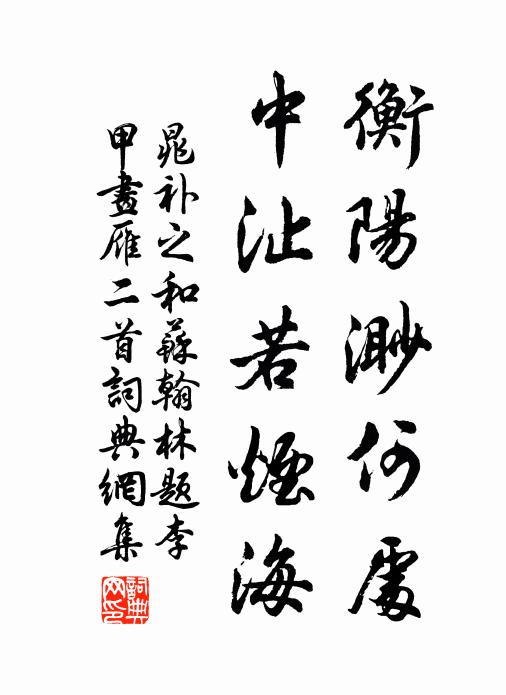 衡陽渺何處
中沚若煙海
晁补之和蘇翰林題李
甲畫雁二首詞典網集
詞典
网印